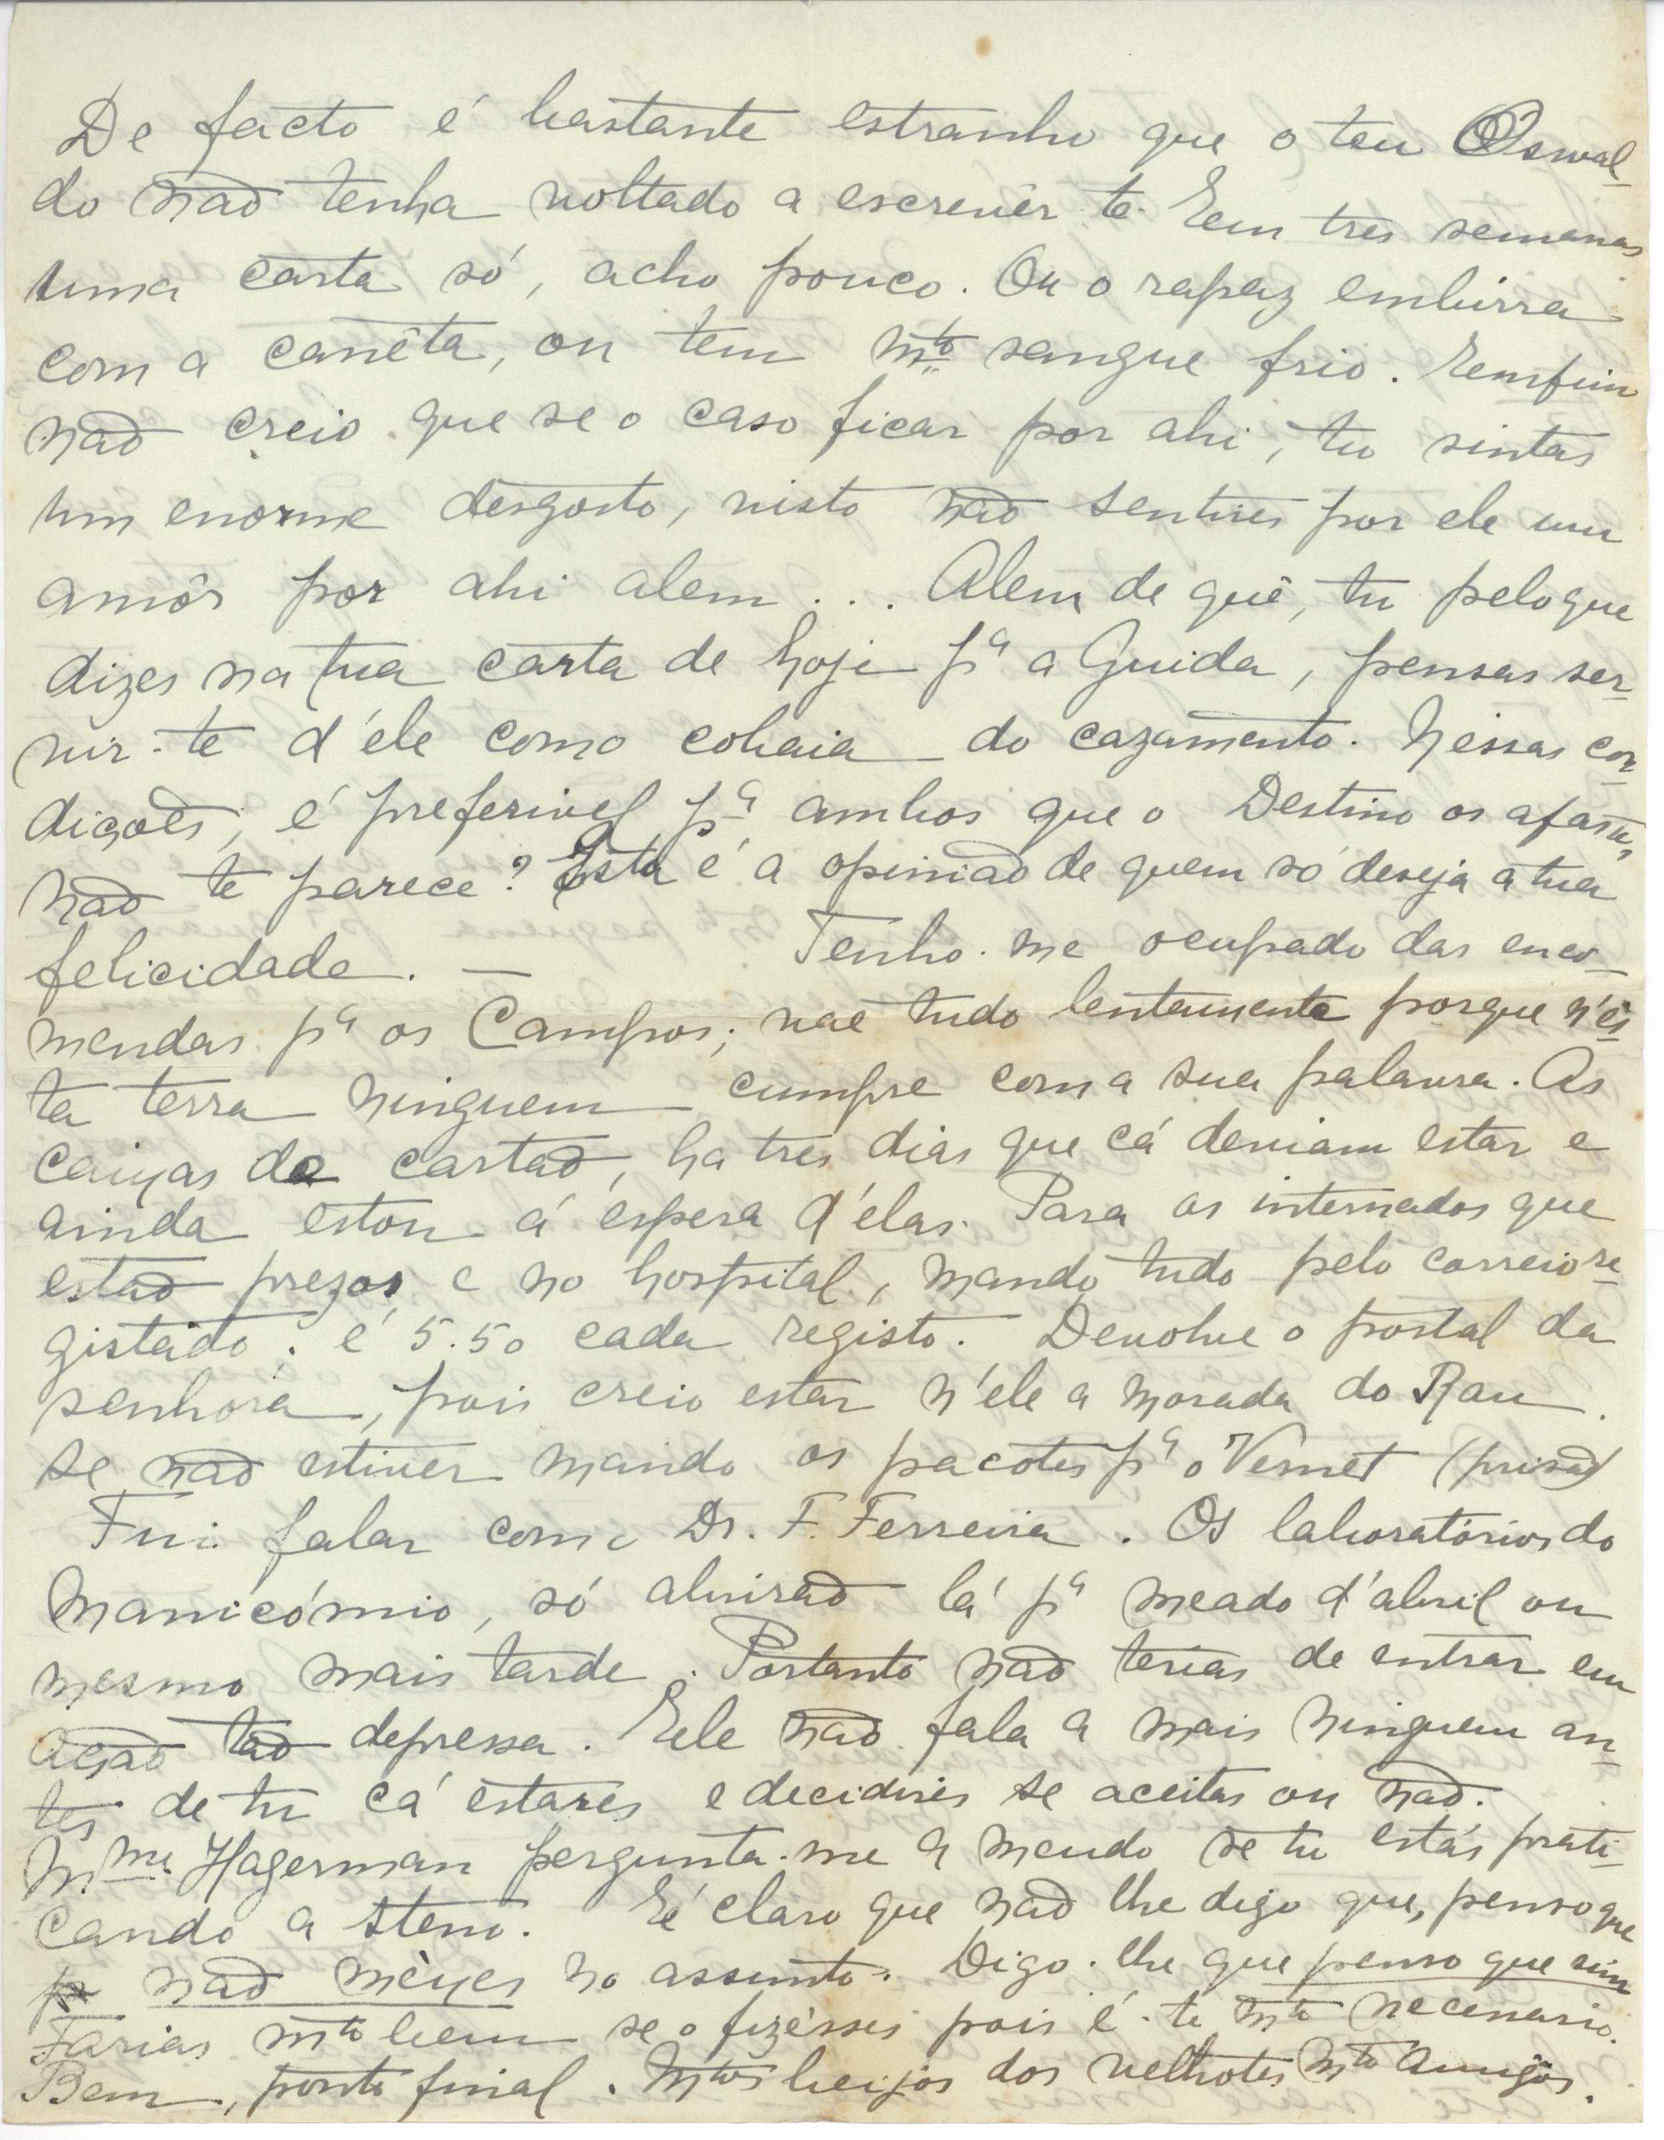 De facto é bastante estranho que o teu Oswal-
do não tenha voltado a escrevêr-te. Em tres semanas
uma carta só, acho pouco. Ou o rapaz embirra
com a canêta, ou tem mto sangue frio. Emfim
não creio que se o caso ficar por ahi, tu sintas
um enorme desgosto, visto não sentires por ele um
amôr por ahi alem... Alem de quê, tu pelo que
dizes na tua carta de hoje pa a Guida, pensas ser-
vir-te d'éle como cobaia do cazamento. Néssas con-
dições, é preferivel pa ambos que o Destino os afaste,
não te parece? Esta é a opinião de quem só deseja a tua
felicidade. — Tenho-me ocupado das enco-
mendas pa os Campos; vae tudo lentamente porque n'és-
ta terra ninguem cumpre com a sua palavra. As
caixas de cartão, ha tres dias que cá deviam estar e
ainda estou á espera d'élas. Para os internados que
estão prezos e no hospital, mando tudo pelo correio re-
gistado. é 5.50 cada registo. Devolve o postal da
senhora, pois creio estar n'ele a morada do Rau.
se não estiver mando os pacotes pa o Vernet (prisão)
Fui falar com o Dr. F. Ferreira. Os laboratórios do
Manicómio, só abrirão lá pa meado d'abril ou
mesmo mais tarde. Portanto não terias de entrar em
ação tão depressa. Ele não fala a mais ninguem an-
tes de tu cá estares e decidires se aceitas ou não.
Mme Hagerman pergunta-me a meudo se tu estás prati-
cando a steno. É claro que não lhe digo que, penso que
não mèxes no assunto. Digo-lhe que penso que sim
Farias mto bem se o fizésses pois é-te mto necessario.
Bem, ponto final. Mtos beijos dos velhotes Mto Amigos.